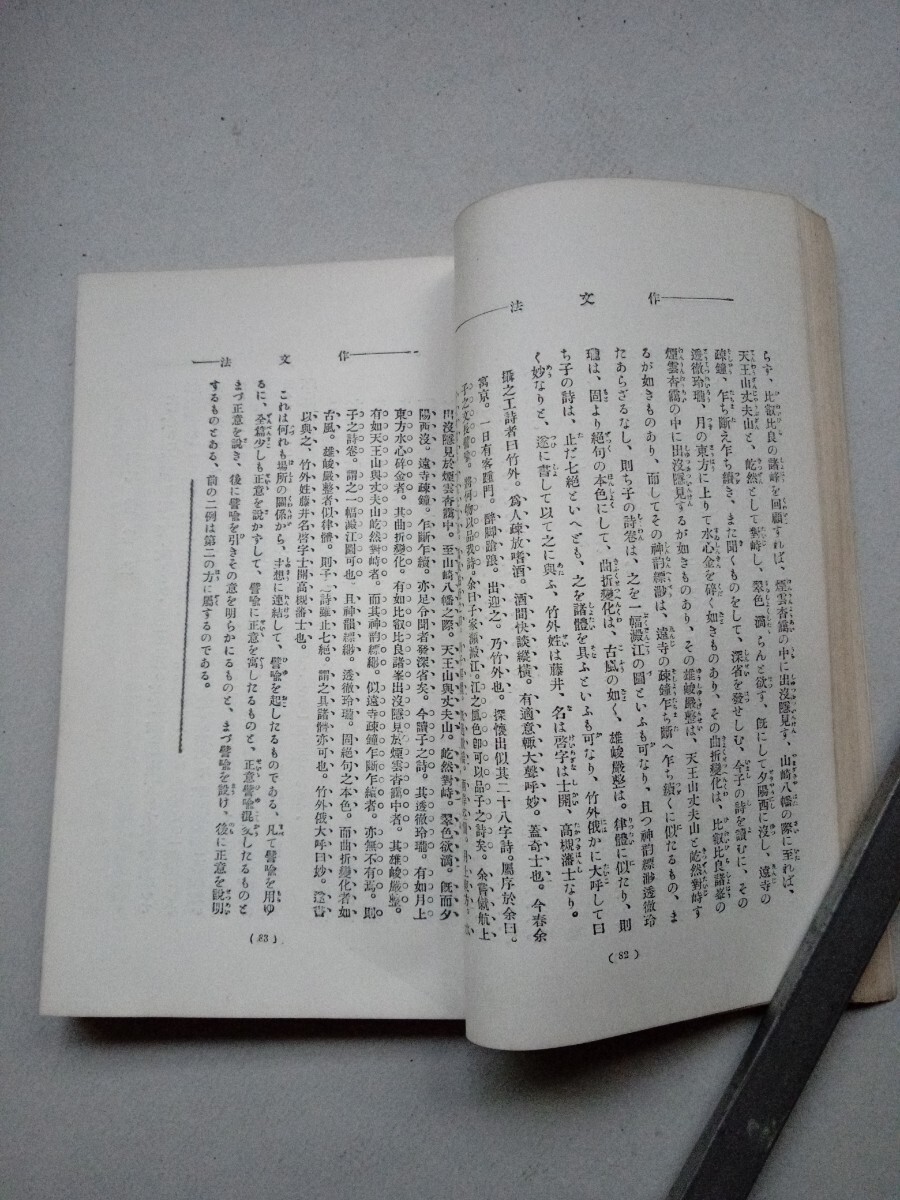 作文法
らす、比叡比良の諸峰を回顧すれば、煙雲杳靄の中に出沒隱見す、山崎八幡の際に至れば、
天王山丈夫山と、屹然として對峙し、翠色滴らんと欲す、既にして夕陽西に沒し、遠寺の
疎鐘、乍ち斷え乍ち續き、また聞くものをして、深省を發せしむ、今子の詩を讀むに、その
透徹玲瓏、月の東方に上りて水心金を碎く如きものあり、その曲折變化は、比叡比良諸峯の
煙雲杳靄の中に出沒隱見するが如きものあり、その雄峻嚴整は、天王山丈夫山と屹然對峙す
るが如きものあり、而してその神韵縹渺は、遠寺の疎鐘乍ち斷へ乍ち續くに似たるもの、ま
たあらざるなし、則ち子の詩卷は、之を一幅澱江の圖といふも可なり、且つ神韵縹渺透徹玲
瓏は、固より絕句の本色にして、曲折變化は、古風の如く、雄峻嚴整は。律體に似たり、則
ち子の詩は、止だ七絕といへども、之を諸體を具ふといふも可なり、竹外俄かに大呼して曰
く妙なりと、遂に書して以て之に與ふ、竹外姓は藤井、名は啓字は士開、高槻藩士なり。
攝之工詩者曰竹外。爲人疎放嗜酒。酒間快談縱横。有適意輙大聲呼妙。蓋奇士也。今春余
寓京。一日有客踵門。醉脚蹌踉。出迎之。乃竹外也。探懷出似其二十八字詩。屬序於余曰。
子之文長於譬喩。將何物以品我詩。余曰子家瀕澱江。江之風色卽可以品子之詩矣。余嘗
(82)
作文法
出沒隱見於煙雲杳靄中。至山崎八幡之際。天王山與丈夫山。屹然對峙。翠色欲滴。既而夕
陽西沒。遠寺疎鐘。乍斷乍續。亦足令聞者發深省矣。今讀子之詩。其透徹玲瓏。有如月上
東方水心碎金者。其曲折變化。有如比叡比良諸峯出沒隱見於煙雲杳靄中者。其雄峻嚴整。
有如天王山與丈夫山屹然對峙者。而其神韵縹緲。似遠寺疎鐘乍斷乍續者。亦無不有焉。則
子之詩卷。謂之一幅澱江圖可也。且神韻縹緲。透徹玲瓏。固絕句之本色。而曲折變化者如
古風。雄峻嚴整者似律體。則子之詩雖止七絕。謂之具諸體亦可也。竹外俄大呼曰妙。遂書
以與之、竹外姓藤井名啓字士開高槻藩士也。
これは何れも場所の關係から、주想に連結して、譬喩を起したるものである、凡て譬喩を用ゆ
るに、全篇少しも正意を說かずして、譬喩に正意を寓したるものと、正意譬喩混へたるものと
まづ正意を說き、後に譬喩を引きその意を明らかにるものと、まづ譬喩を設け、後に正意を說明
するものとある、前の二例は第二の方に屬するのである。
(83)